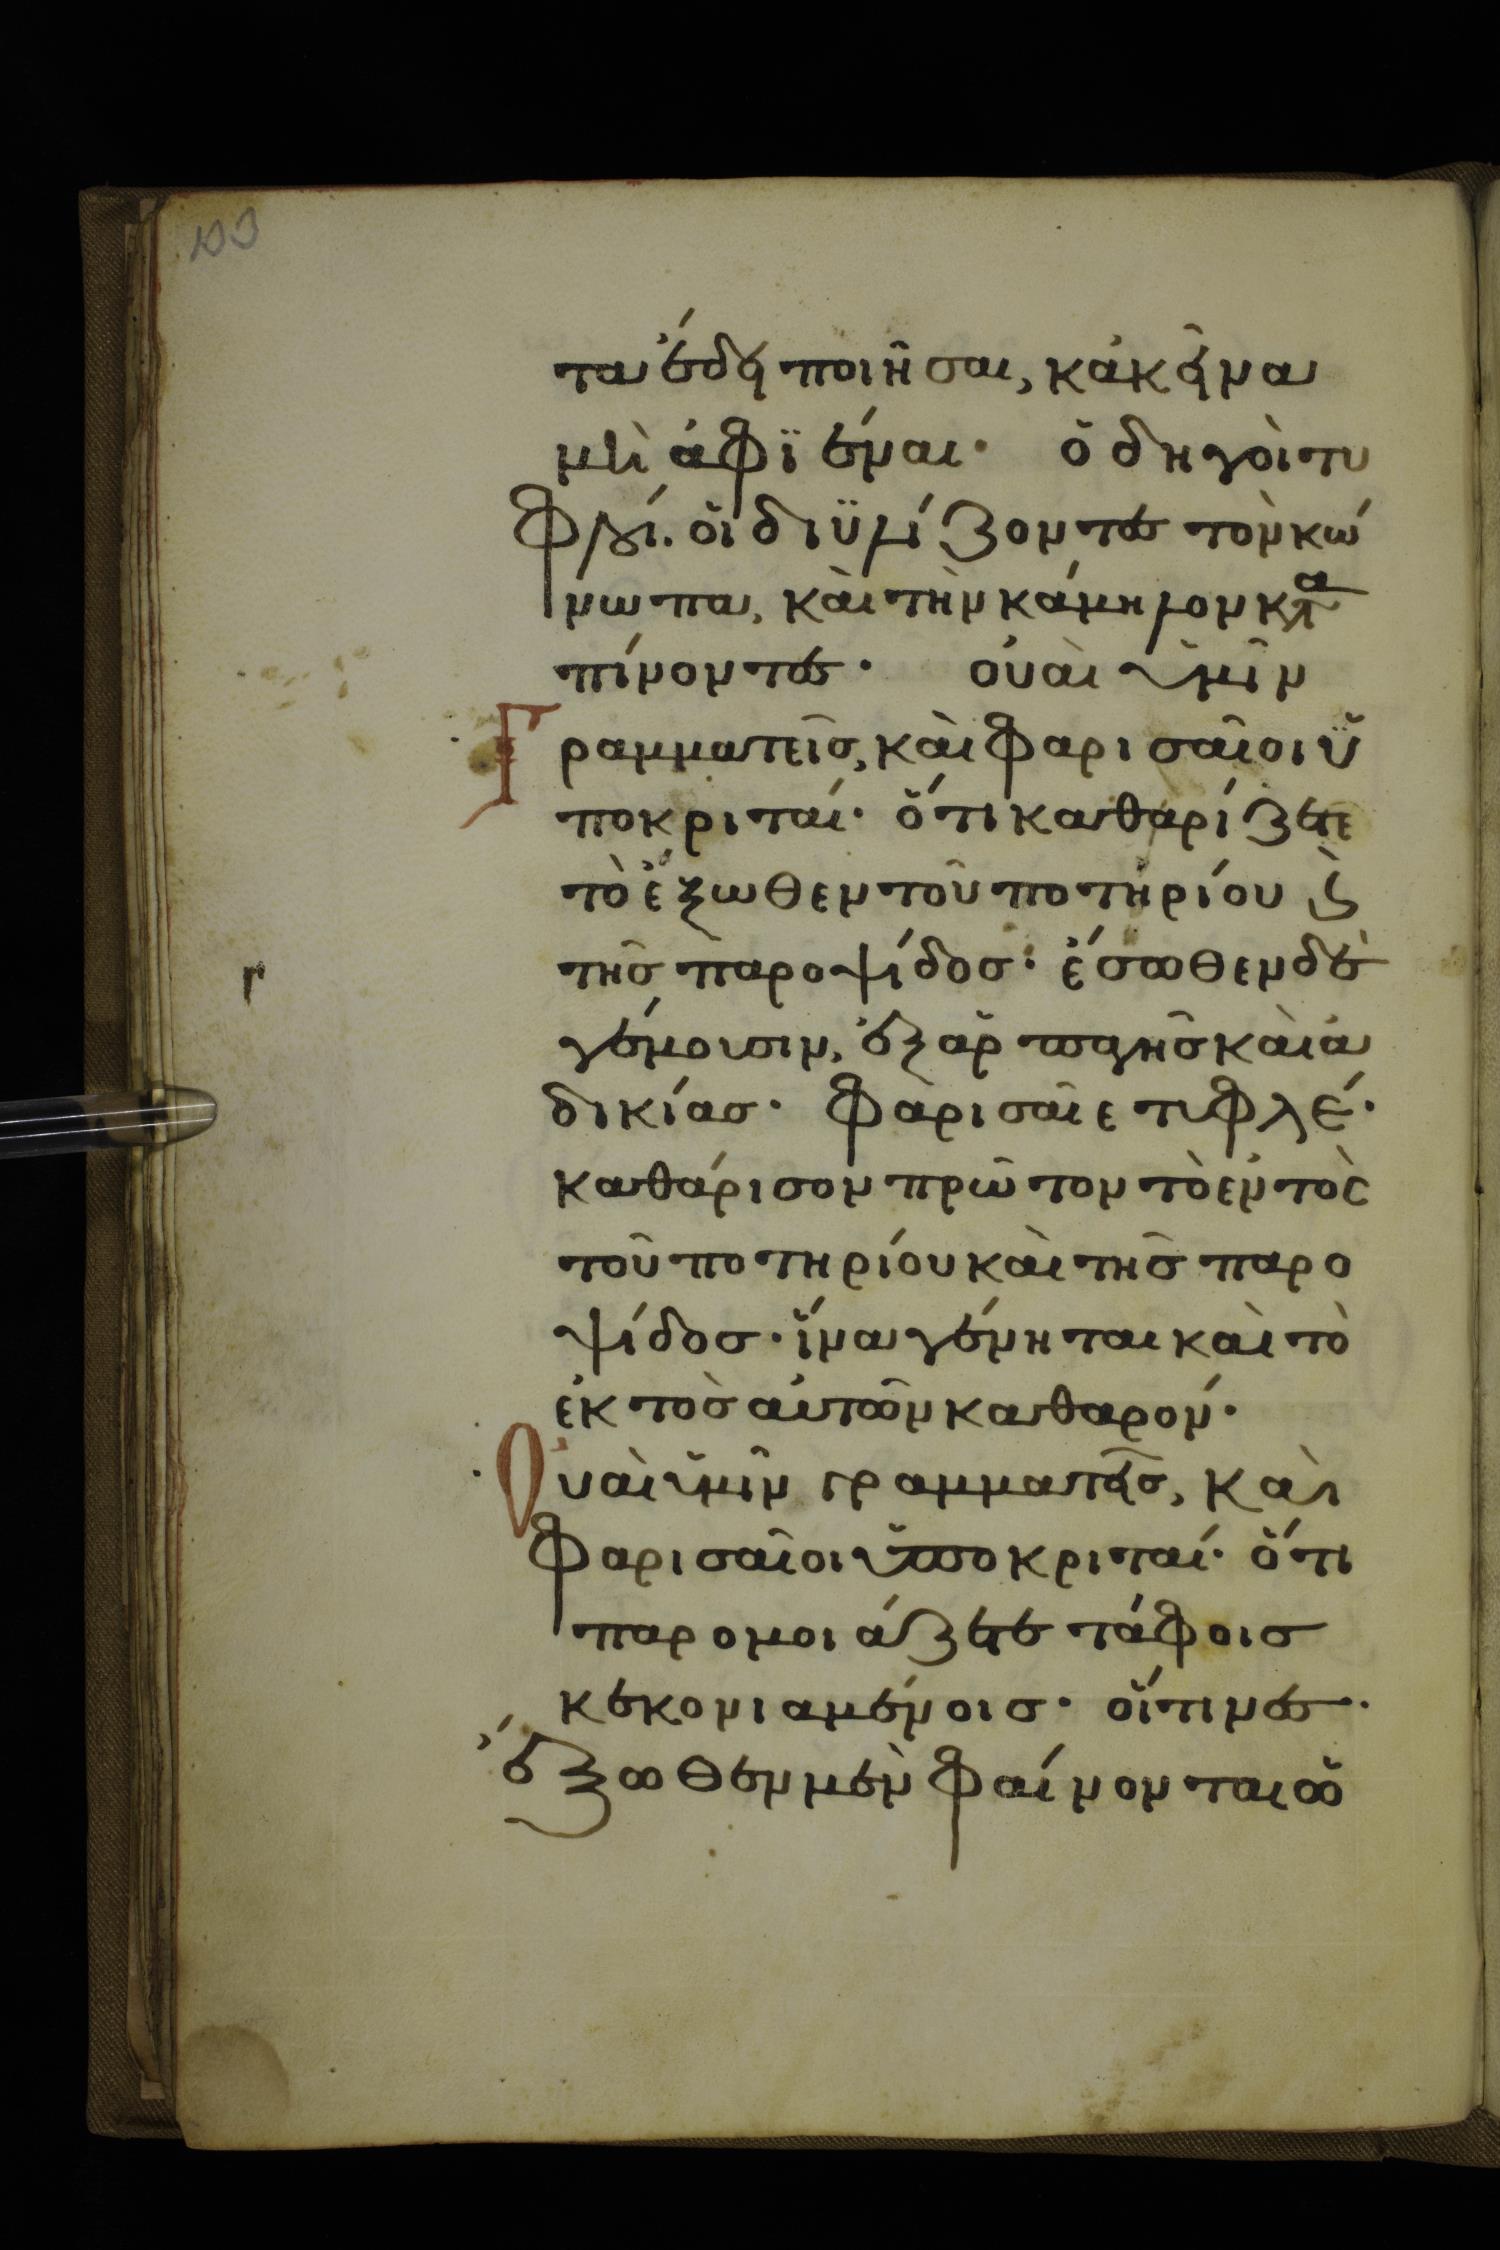 τα ἔδει ποιῆσαι, κἀκεῖνα
μὴ ἀφϊέναι· ὁδηγοὶ τυ
φλοί. οἱ διϋλίζοντες τὸν κώ
νωπα, καὶ τὴν κάμηλον κατα
πίνοντες· οὐαὶ ὑμῖν
Γραμματεῖς, καὶ φαρισαῖοι ὑ
ποκριταί· ὅτι καθαρίζετε
τὸ ἔξωθεν τοῦ ποτηρίου ϗ
τῆς παροψίδος· ἔσωθεν δὲ
γέμουσιν, ἐξ ἁρπαγῆς καὶ ἀ
δικίας· Φαρισαῖε τυφλέ·
καθάρισον πρῶτον τὸ ἐντὸς
τοῦ ποτηρίου καὶ τῆς παρο
ψίδος· ἵνα γένηται καὶ τὸ
ἐκτὸς αὐτῶν καθαρόν·
Οὐαὶ ὑμῖν γραμματεῖς, καὶ
Φαρισαῖοι ὑποκριταί· ὅτι
παρομοιάζετε τάφοις
κεκονιαμένοις· οἵτινες·
ἔξωθεν μὲν φαίνονται ὡ